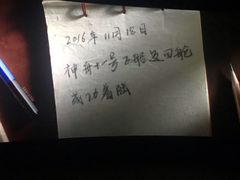 2016年11月18日
神舟十一号飞船返回舱
成功着陆